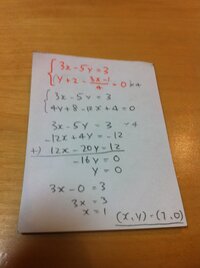 3x-5y=3
y+2-\frac{3x-1}{4}=0 |·4
3x-5y=3
4y+8-12x+4=0
3x-5y=3 ·4
-12x+4y=-12
+) 12x-20y=12
-16y=0
y=0
3x-0=3
3x=3
x=1
(x,y)=(1,0)